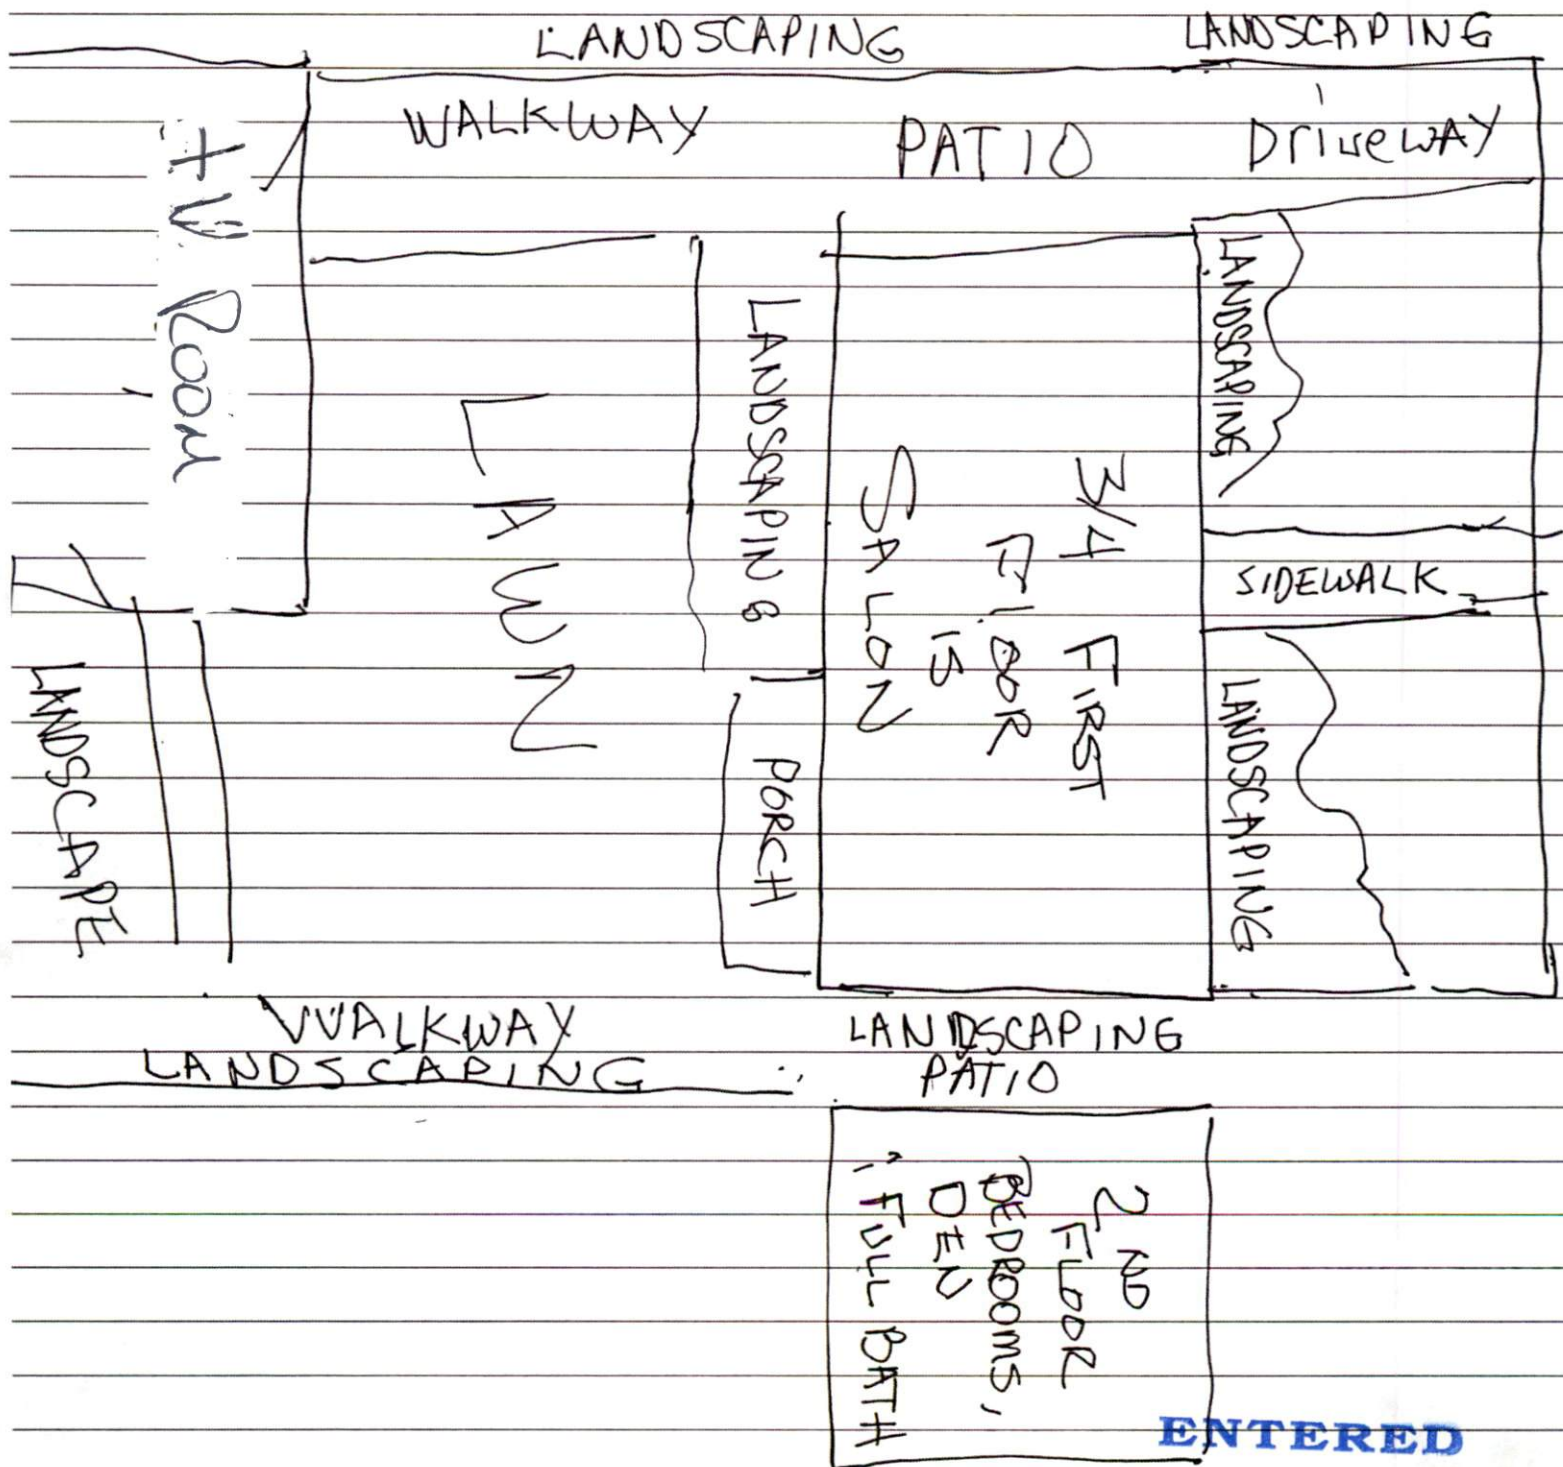 LANDSCAPING
LANDSCAPING
WALKWAY
PATIO
DriveWAY
TV Room
LAWN
LANDSCAPING
PORCH
3/4 FIRST
FLOOR
IS
SALON
LANDSCAPING
SIDEWALK
LANDSCAPING
LANDSCAPE
WALKWAY
LANDSCAPING
LANDSCAPING
PATIO
2ND
FLOOR
BEDROOMS,
DEN
FULL BATH
ENTERED